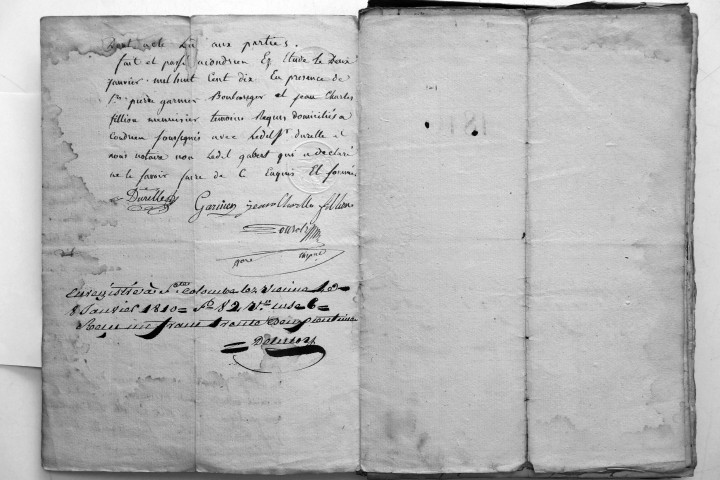 Dont acte Lu aux parties.
fait et passé a condrieu Ef Etude Le Deux
janvier mil huit Cent dix En presence de
Srs. pierre garnier Boulanger et jean Charles
fillion menuisier temoins Requis domiciliés a
condrieu soussignés avec Ledit Sr. durelle &
nous notaire non Ledit gabert qui a declaré
ne le savoir faire de Ce Enquis Et sommé
Durelle
Garnier jean Charles fillion
Enregistré à Ste. Colombe lez Vienne Le
8 Janvier 1810 = fo. 82 Vo. case 6 =
Reçu un franc trente Deux Centimes